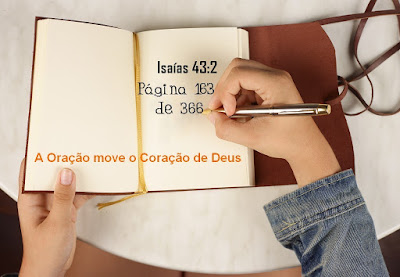 Isaías 43:2
Página 163
de 366
A Oração move o Coração de Deus